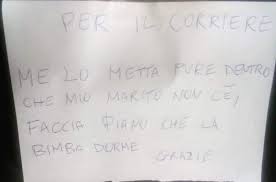 PER IL CORRIERE
ME LO METTA PURE DENTRO
CHE MIO MARITO NON C'È,
FACCIA PIANO CHE LA
BIMBA DORME
GRAZIE